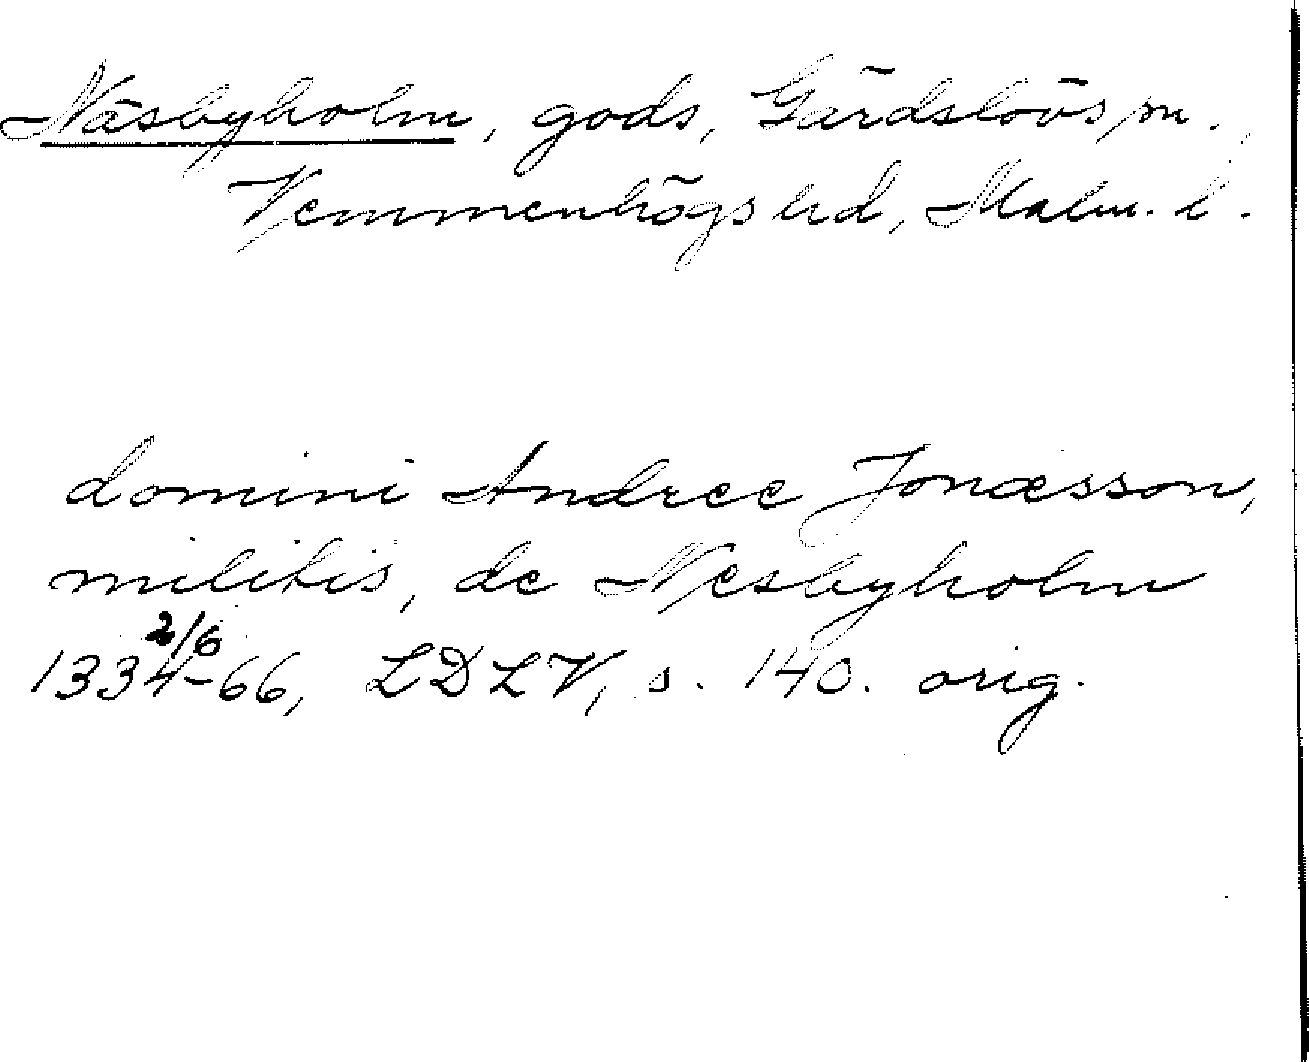 Näsbyholm, gods, Gärdslövs sn.,
Vemmenhögs hd, Malm. l.
domini Andree Jonæsson,
militis, de Nesbyholm
1334 2/6 -66, LDLV, s. 140. orig.